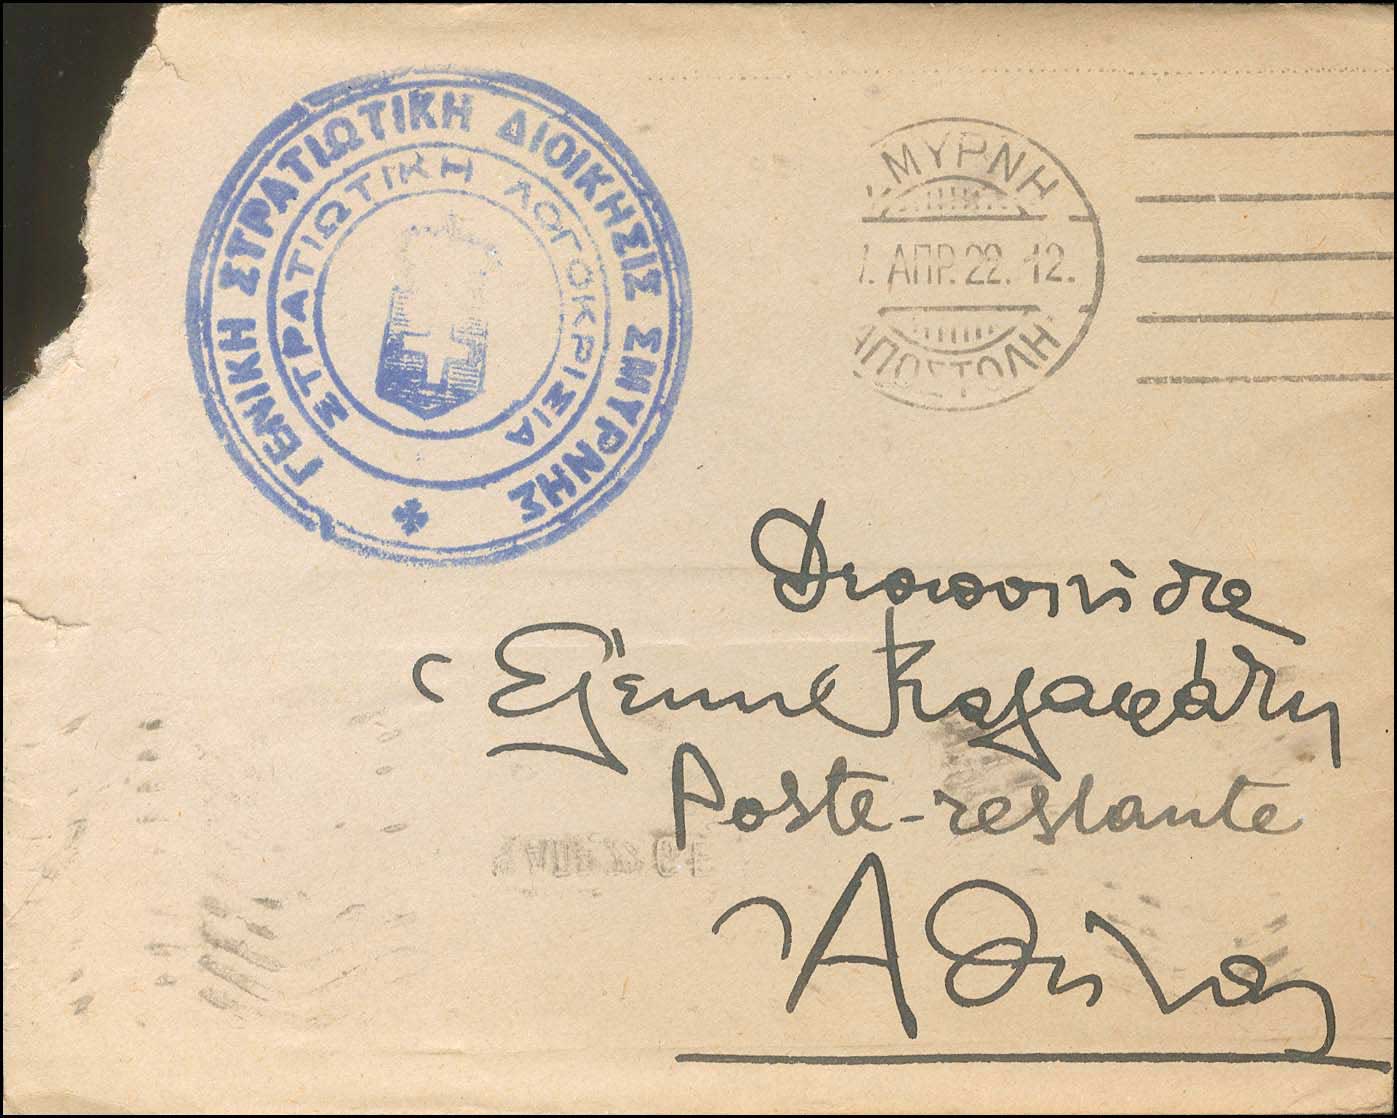 ΓΕΝΙΚΗ ΣΤΡΑΤΙΩΤΙΚΗ ΔΙΟΙΚΗΣΙΣ ΣΜΥΡΝΗΣ
ΣΤΡΑΤΙΩΤΙΚΗ ΛΟΓΟΚΡΙΣΙΑ
ΣΜΥΡΝΗ
ΑΠΡ. 22. 12.
ΑΠΟΣΤΟΛΗ
Δεσποινίδα
Ἑλένην Καλαφάτη
Poste-restante
Ἀθήνας